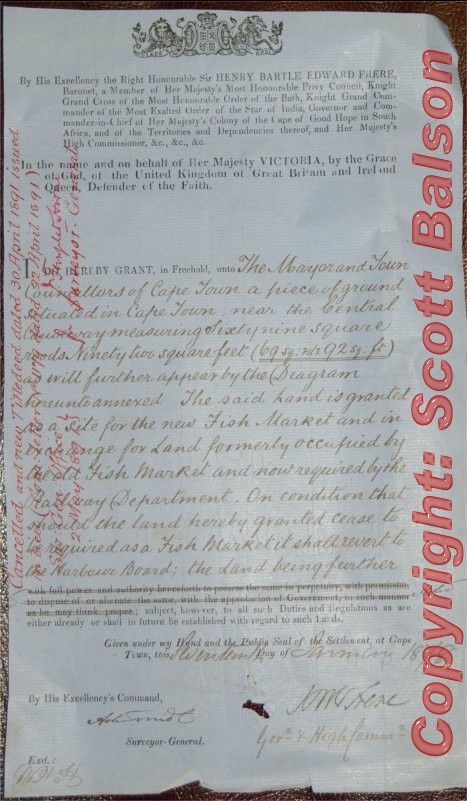 By His Excellency the Right Honourable Sir HENRY BARTLE EDWARD FRERE,
Baronet, a Member of Her Majesty's Most Honourable Privy Council, Knight
Grand Cross of the Most Honorable Order of the Bath, Knight Grand Com-
mander of the Most Exalted Order of the Star of India, Governor and Com-
mander-in-Chief of Her Majesty's Colony of the Cape of Good Hope in South
Africa, and of the Territories and Dependencies thereof, and Her Majesty's
High Commissioner, &c., &c., &c.
In the name and on behalf of Her Majesty VICTORIA, by the Grace
of God, of the United Kingdom of Great Britain and Ireland
Queen, Defender of the Faith.
I DO HEREBY GRANT, in Freehold, unto The Mayor and Town
Councillors of Cape Town a piece of ground
situated in Cape Town, near the Central
measuring Sixty nine square
roods Ninety two square feet (69 sq: rds 92 sq: ft)
as will further appear by the Diagram
hereunto annexed The said land is granted
as a Site for the new Fish Market and in
exchange for Land formerly occupied by
the old Fish Market and now required by the
Railway Department. On condition that
should the land hereby granted cease to
be required as a Fish Market it shall revert to
the Harbour Board; the Land being further
with full power and authority henceforth to possess the same in perpetuity, with permission
to dispose of or alienate the same, with the approbation of Government, in such manner
as he may think proper; subject, however, to all such Duties and Regulations as are
either already or shall in future be established with regard to such Lands.
Given under my Hand and the Public Seal of the Settlement, at Cape
Town, this Day of 18
By His Excellency's Command,
Surveyor-General.
Govr & High Commr
Exd.:
Cancelled and new Title deed dated 30 April 1891 issued
Surveyor-General
Copyright: Scott Balson